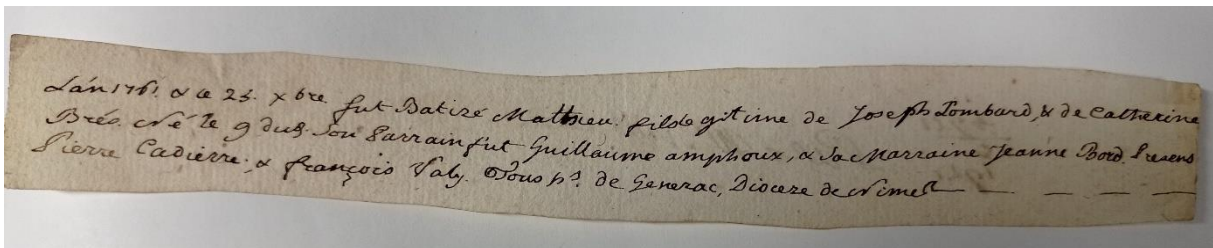 L'an 1761. & le 25. xbre. fut Batizé Mathieu fils légitime de Joseph Lombard, & de Catherine
Brés. Né le 9 dud. Son Parrain fut Guillaume amphoux, & Sa Marraine Jeanne Bord. Presens
Pierre Cadierre, & françois Valz. Tous ps. de Generac, Dioceze de Nimes